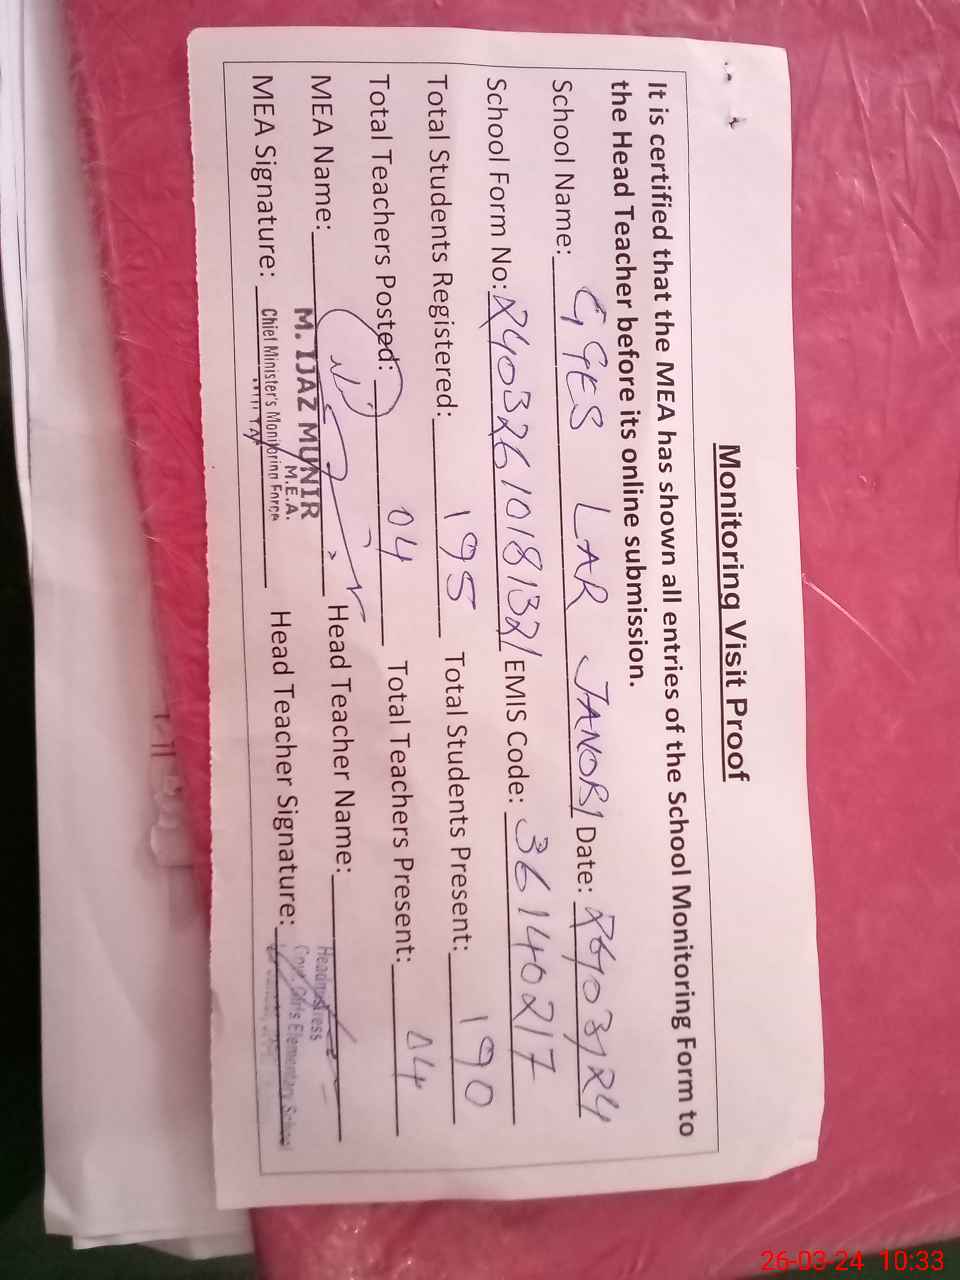 Monitoring Visit Proof
It is certified that the MEA has shown all entries of the School Monitoring Form to
the Head Teacher before its online submission.
School Name: GGES LAR JANOBI Date: 26/03/24
School Form No: 2403261018132 EMIS Code: 36140217
Total Students Registered: 195 Total Students Present: 190
Total Teachers Posted: 04 Total Teachers Present: 04
MEA Name: Head Teacher Name:
M. IJAZ MUNIR
M.E.A.
Headmistress
MEA Signature: Chief Minister's Monitoring Force Head Teacher Signature: Govt. Girls Elementary School
26-03-24 10:33